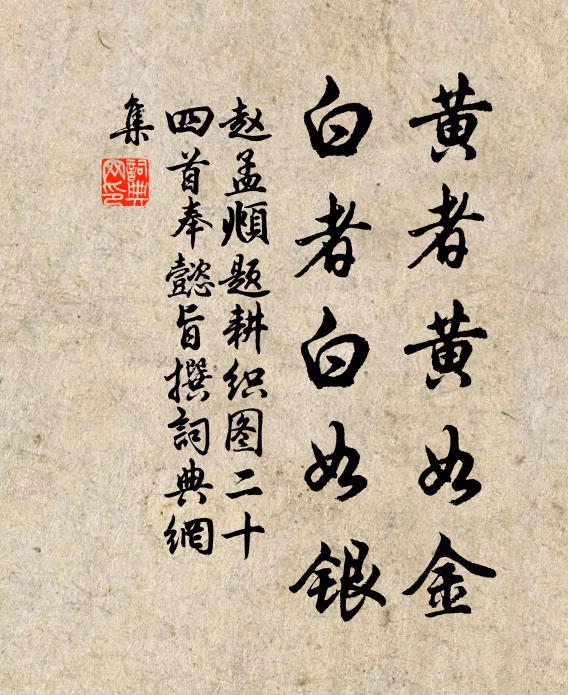 黄者黄如金
白者白如银
赵孟頫题耕织图二十
四首奉懿旨撰詞典網
集
詞典網印